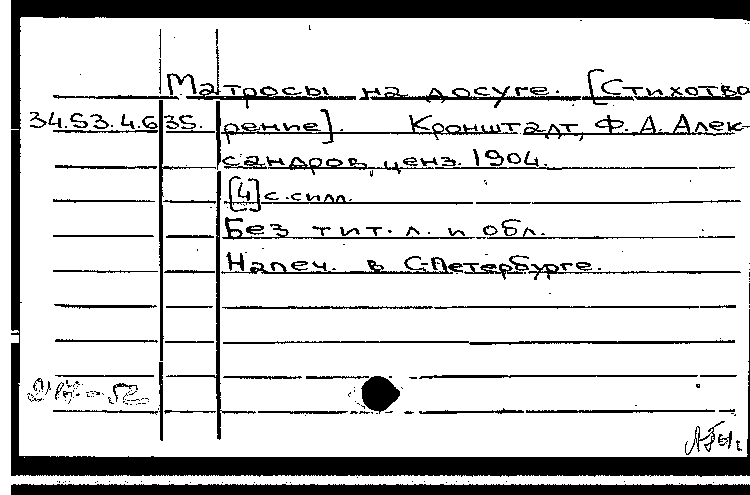 Матросы на досуге. [Стихотво
34.53.4.635. рение]. Кронштадт, Ф. А. Алек-
сандров, ценз. 1904.
[4] с. с илл.
Без тит. л. и обл.
Напеч. в С-Петербурге.